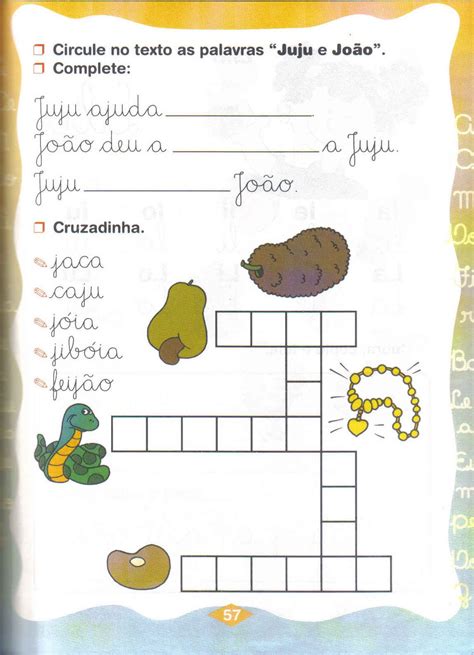 Circule no texto as palavras “Juju e João”.
Complete:
Juju ajuda
João deu a a Juju.
Juju João.
Cruzadinha.
jaca
caju
jóia
jibóia
feijão
57